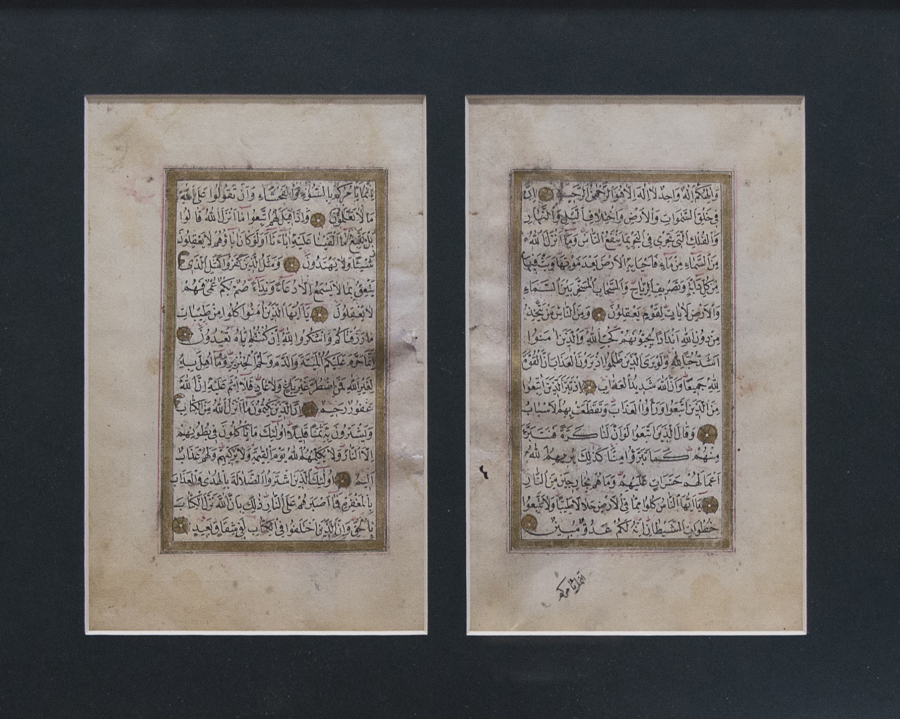 وَإِلٰهُكُمْ إِلٰهٌ وَاحِدٌ لَا إِلٰهَ إِلَّا هُوَ الرَّحْمٰنُ الرَّحِيمُ إِنَّ
فِي خَلْقِ السَّمٰوَاتِ وَالْأَرْضِ وَاخْتِلَافِ الَّيْلِ وَالنَّهَارِ
وَالْفُلْكِ الَّتِي تَجْرِي فِي الْبَحْرِ بِمَا يَنْفَعُ النَّاسَ وَمَا أَنْزَلَ اللهُ
مِنَ السَّمَاءِ مِنْ مَاءٍ فَأَحْيَا بِهِ الْأَرْضَ بَعْدَ مَوْتِهَا وَبَثَّ فِيهَا
مِنْ كُلِّ دَابَّةٍ وَتَصْرِيفِ الرِّيَاحِ وَالسَّحَابِ الْمُسَخَّرِ بَيْنَ السَّمَاءِ
وَالْأَرْضِ لَآيَاتٍ لِقَوْمٍ يَعْقِلُونَ وَمِنَ النَّاسِ مَنْ يَتَّخِذُ
مِنْ دُونِ اللهِ أَنْدَادًا يُحِبُّونَهُمْ كَحُبِّ اللهِ وَالَّذِينَ اٰمَنُوا
أَشَدُّ حُبًّا لِلهِ وَلَوْ يَرَى الَّذِينَ ظَلَمُوا إِذْ يَرَوْنَ الْعَذَابَ أَنَّ الْقُوَّةَ
لِلهِ جَمِيعًا وَأَنَّ اللهَ شَدِيدُ الْعَذَابِ إِذْ تَبَرَّأَ الَّذِينَ اتُّبِعُوا
مِنَ الَّذِينَ اتَّبَعُوا وَرَأَوُا الْعَذَابَ وَتَقَطَّعَتْ بِهِمُ الْأَسْبَابُ
وَقَالَ الَّذِينَ اتَّبَعُوا لَوْ أَنَّ لَنَا كَرَّةً فَنَتَبَرَّأَ
مِنْهُمْ كَمَا تَبَرَّؤُا مِنَّا كَذٰلِكَ يُرِيهِمُ اللهُ
أَعْمَالَهُمْ حَسَرَاتٍ عَلَيْهِمْ وَمَا هُمْ بِخَارِجِينَ مِنَ النَّارِ
يَا أَيُّهَا النَّاسُ كُلُوا مِمَّا فِي الْأَرْضِ حَلَالًا طَيِّبًا وَلَا تَتَّبِعُوا
خُطُوَاتِ الشَّيْطَانِ إِنَّهُ لَكُمْ عَدُوٌّ مُبِينٌ
انما يأمركم
إِنَّمَا يَأْمُرُكُمْ بِالسُّوءِ وَالْفَحْشَاءِ وَأَنْ تَقُولُوا عَلَى اللهِ
مَا لَا تَعْلَمُونَ وَإِذَا قِيلَ لَهُمُ اتَّبِعُوا مَا أَنْزَلَ اللهُ قَالُوا
بَلْ نَتَّبِعُ مَا أَلْفَيْنَا عَلَيْهِ اٰبَاءَنَا أَوَلَوْ كَانَ اٰبَاؤُهُمْ لَا يَعْقِلُونَ
شَيْئًا وَلَا يَهْتَدُونَ وَمَثَلُ الَّذِينَ كَفَرُوا كَمَثَلِ الَّذِي
يَنْعِقُ بِمَا لَا يَسْمَعُ إِلَّا دُعَاءً وَنِدَاءً صُمٌّ بُكْمٌ عُمْيٌ فَهُمْ
لَا يَعْقِلُونَ يَا أَيُّهَا الَّذِينَ اٰمَنُوا كُلُوا مِنْ طَيِّبَاتِ
مَا رَزَقْنَاكُمْ وَاشْكُرُوا لِلهِ إِنْ كُنْتُمْ إِيَّاهُ تَعْبُدُونَ
إِنَّمَا حَرَّمَ عَلَيْكُمُ الْمَيْتَةَ وَالدَّمَ وَلَحْمَ الْخِنْزِيرِ وَمَا أُهِلَّ بِهِ
لِغَيْرِ اللهِ فَمَنِ اضْطُرَّ غَيْرَ بَاغٍ وَلَا عَادٍ فَلَا إِثْمَ عَلَيْهِ إِنَّ اللهَ
غَفُورٌ رَحِيمٌ إِنَّ الَّذِينَ يَكْتُمُونَ مَا أَنْزَلَ اللهُ مِنَ الْكِتَابِ
وَيَشْتَرُونَ بِهِ ثَمَنًا قَلِيلًا أُولٰئِكَ مَا يَأْكُلُونَ فِي بُطُونِهِمْ
إِلَّا النَّارَ وَلَا يُكَلِّمُهُمُ اللهُ يَوْمَ الْقِيٰمَةِ وَلَا يُزَكِّيهِمْ وَلَهُمْ عَذَابٌ
أَلِيمٌ أُولٰئِكَ الَّذِينَ اشْتَرَوُا الضَّلَالَةَ بِالْهُدٰى وَالْعَذَابَ
بِالْمَغْفِرَةِ فَمَا أَصْبَرَهُمْ عَلَى النَّارِ ذٰلِكَ بِأَنَّ اللهَ نَزَّلَ الْكِتَابَ
بِالْحَقِّ وَإِنَّ الَّذِينَ اخْتَلَفُوا فِي الْكِتَابِ لَفِي شِقَاقٍ بَعِيدٍ